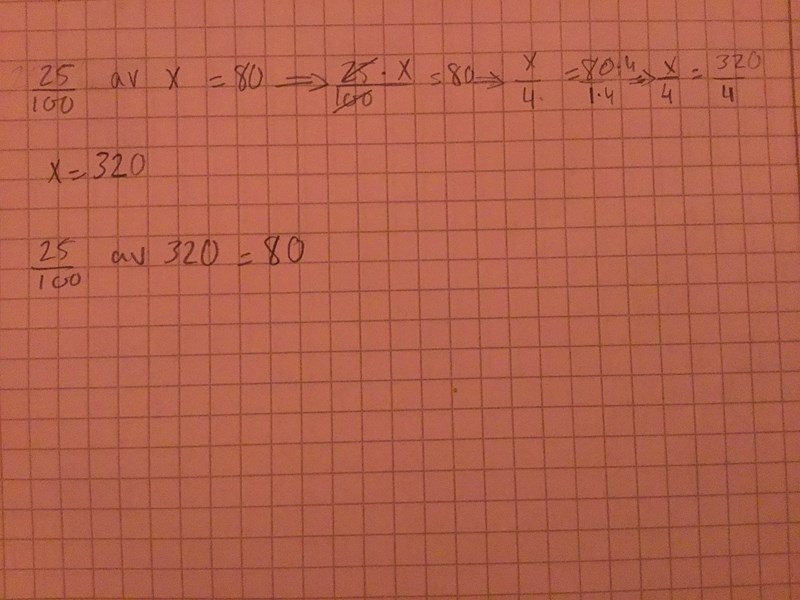 25/100 av x = 80 ⇒ 25·x/100 = 80 ⇒ x/4 = 80·4/1·4 ⇒ x/4 = 320/4
x = 320
25/100 av 320 = 80